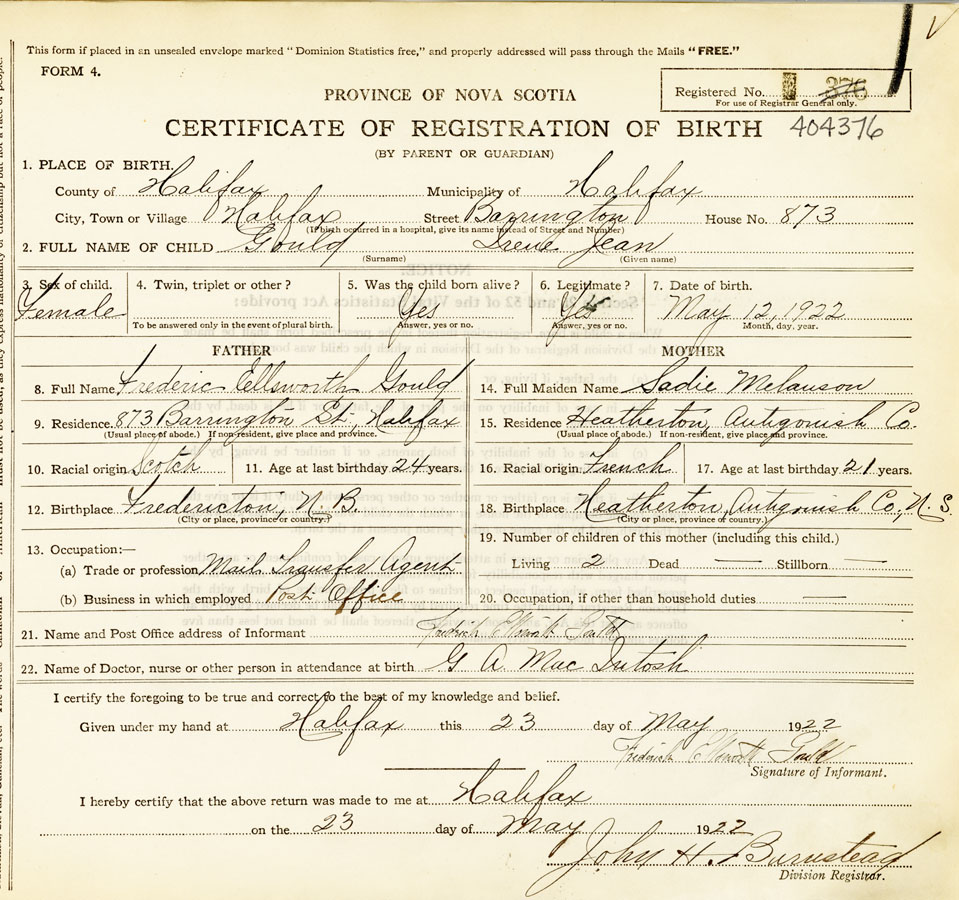 This form if placed in an unsealed envelope marked "Dominion Statistics free," and properly addressed will pass through the Mails "FREE."
FORM 4.
Registered No. 376
For use of Registrar General only.
PROVINCE OF NOVA SCOTIA
CERTIFICATE OF REGISTRATION OF BIRTH 404376
(BY PARENT OR GUARDIAN)
1. PLACE OF BIRTH.
County of Halifax Municipality of Halifax
City, Town or Village Halifax Street Barrington House No. 873
(If birth occurred in a hospital, give its name instead of Street and Number)
2. FULL NAME OF CHILD Gould Irene Jean
(Surname) (Given name)
3. Sex of child. 4. Twin, triplet or other? 5. Was the child born alive? 6. Legitimate? 7. Date of birth.
Female Yes Yes May 12, 1922
To be answered only in the event of plural birth. Answer, yes or no. Answer, yes or no. Month, day, year.
FATHER MOTHER
8. Full Name Frederic Ellsworth Gould 14. Full Maiden Name Sadie Melanson
9. Residence. 873 Barrington St., Halifax 15. Residence Heatherton, Antigonish Co.
(Usual place of abode.) If non-resident, give place and province. (Usual place of abode.) If non-resident, give place and province.
10. Racial origin Scotch 11. Age at last birthday 24 years. 16. Racial origin French 17. Age at last birthday 21 years.
12. Birthplace Fredericton, N.B. 18. Birthplace Heatherton, Antigonish Co., N.S.
(City or place, province or country.) (City or place, province or country.)
13. Occupation:— 19. Number of children of this mother (including this child.)
(a) Trade or profession Mail Transfer Agent Living 2 Dead — Stillborn —
(b) Business in which employed Post Office 20. Occupation, if other than household duties —
21. Name and Post Office address of Informant Fredrick Ellsworth Gould
22. Name of Doctor, nurse or other person in attendance at birth G A MacIntosh
I certify the foregoing to be true and correct to the best of my knowledge and belief.
Given under my hand at Halifax this 23 day of May 1922
Fredrick Ellsworth Gould
Signature of Informant.
I hereby certify that the above return was made to me at Halifax
on the 23 day of May 1922
John H. Burnstead
Division Registrar.